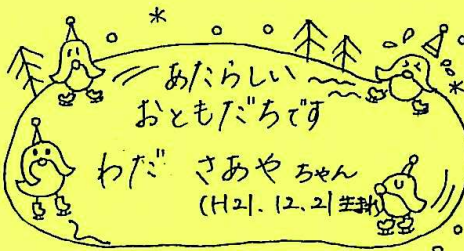 あたらしい
おともだちです
わだ さあや ちゃん
(H21.12.21生まれ)